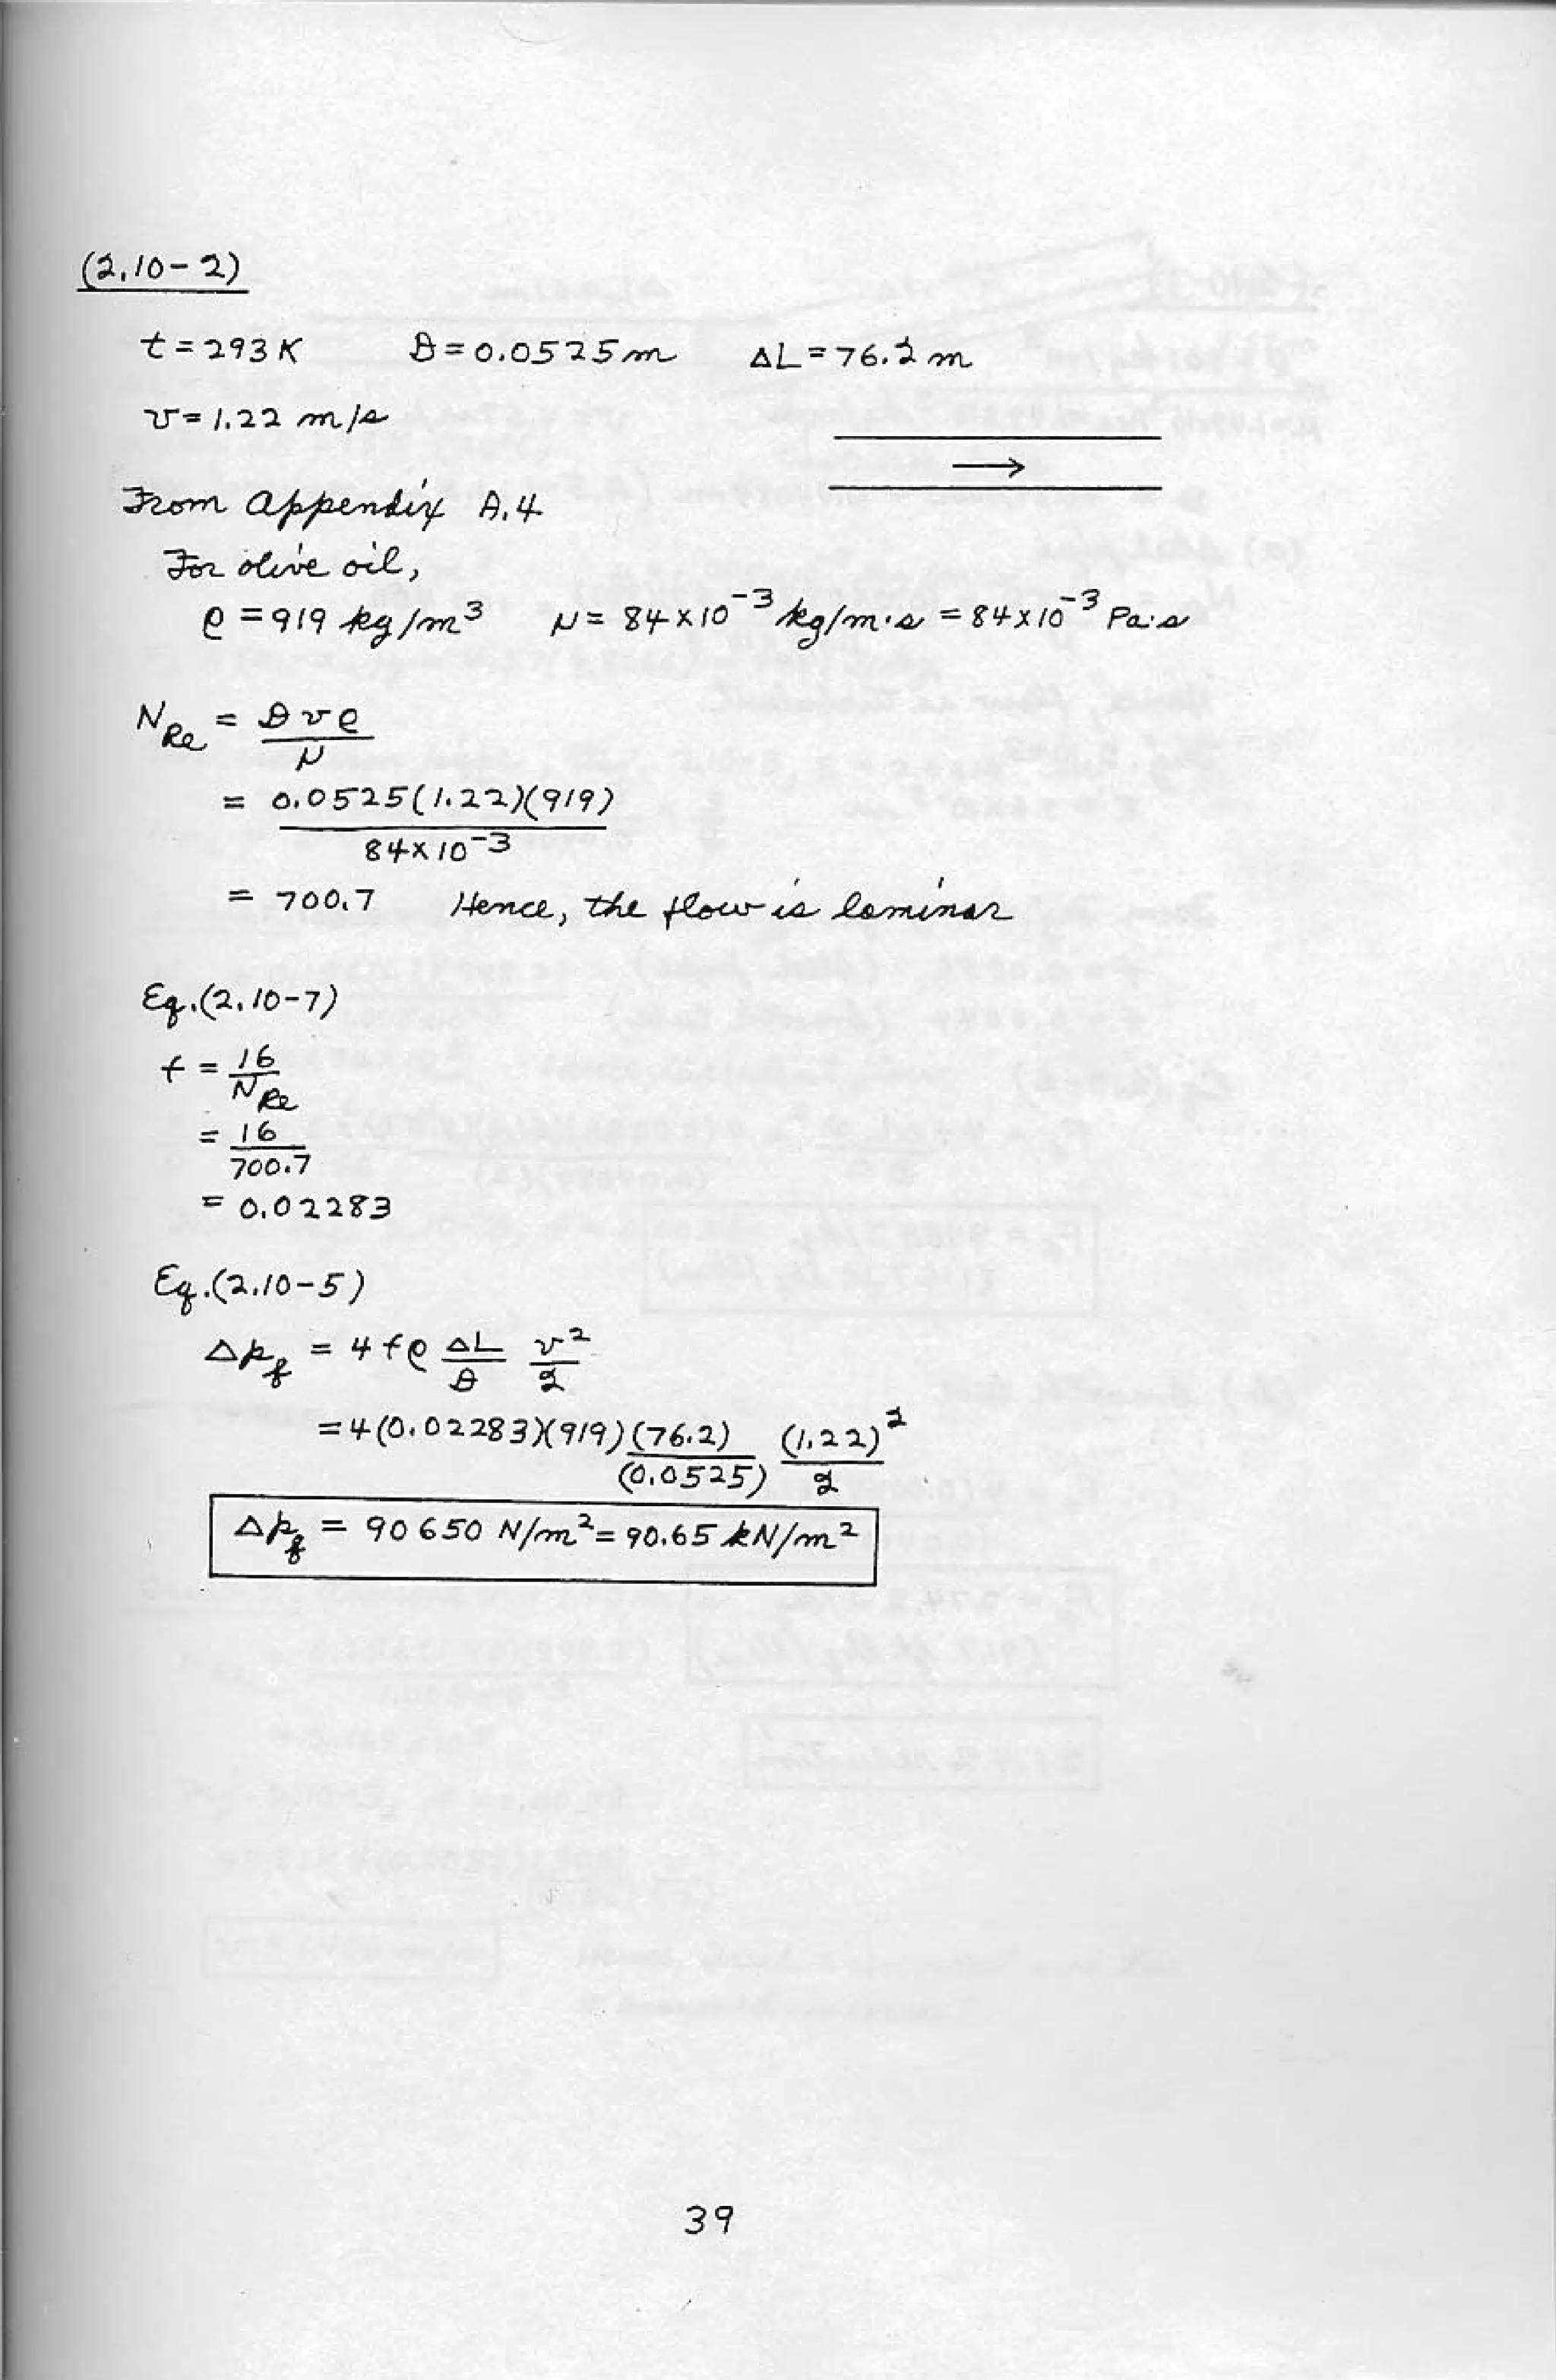 (2.10-2)
t = 293 K D = 0.0525 m ΔL = 76.2 m
v = 1.22 m/s
→
From Appendix A.4
For olive oil,
ρ = 919 kg/m³ μ = 84 × 10⁻³ kg/m·s = 84 × 10⁻³ Pa·s
N_Re = Dvρ / μ
= 0.0525(1.22)(919) / 84 × 10⁻³
= 700.7 Hence, the flow is laminar
Eq.(2.10-7)
f = 16 / N_Re
= 16 / 700.7
= 0.02283
Eq.(2.10-5)
Δp_f = 4fρ ΔL/D v²/2
= 4(0.02283)(919) (76.2)/(0.0525) (1.22)²/2
Δp_f = 90 650 N/m² = 90.65 kN/m²
39